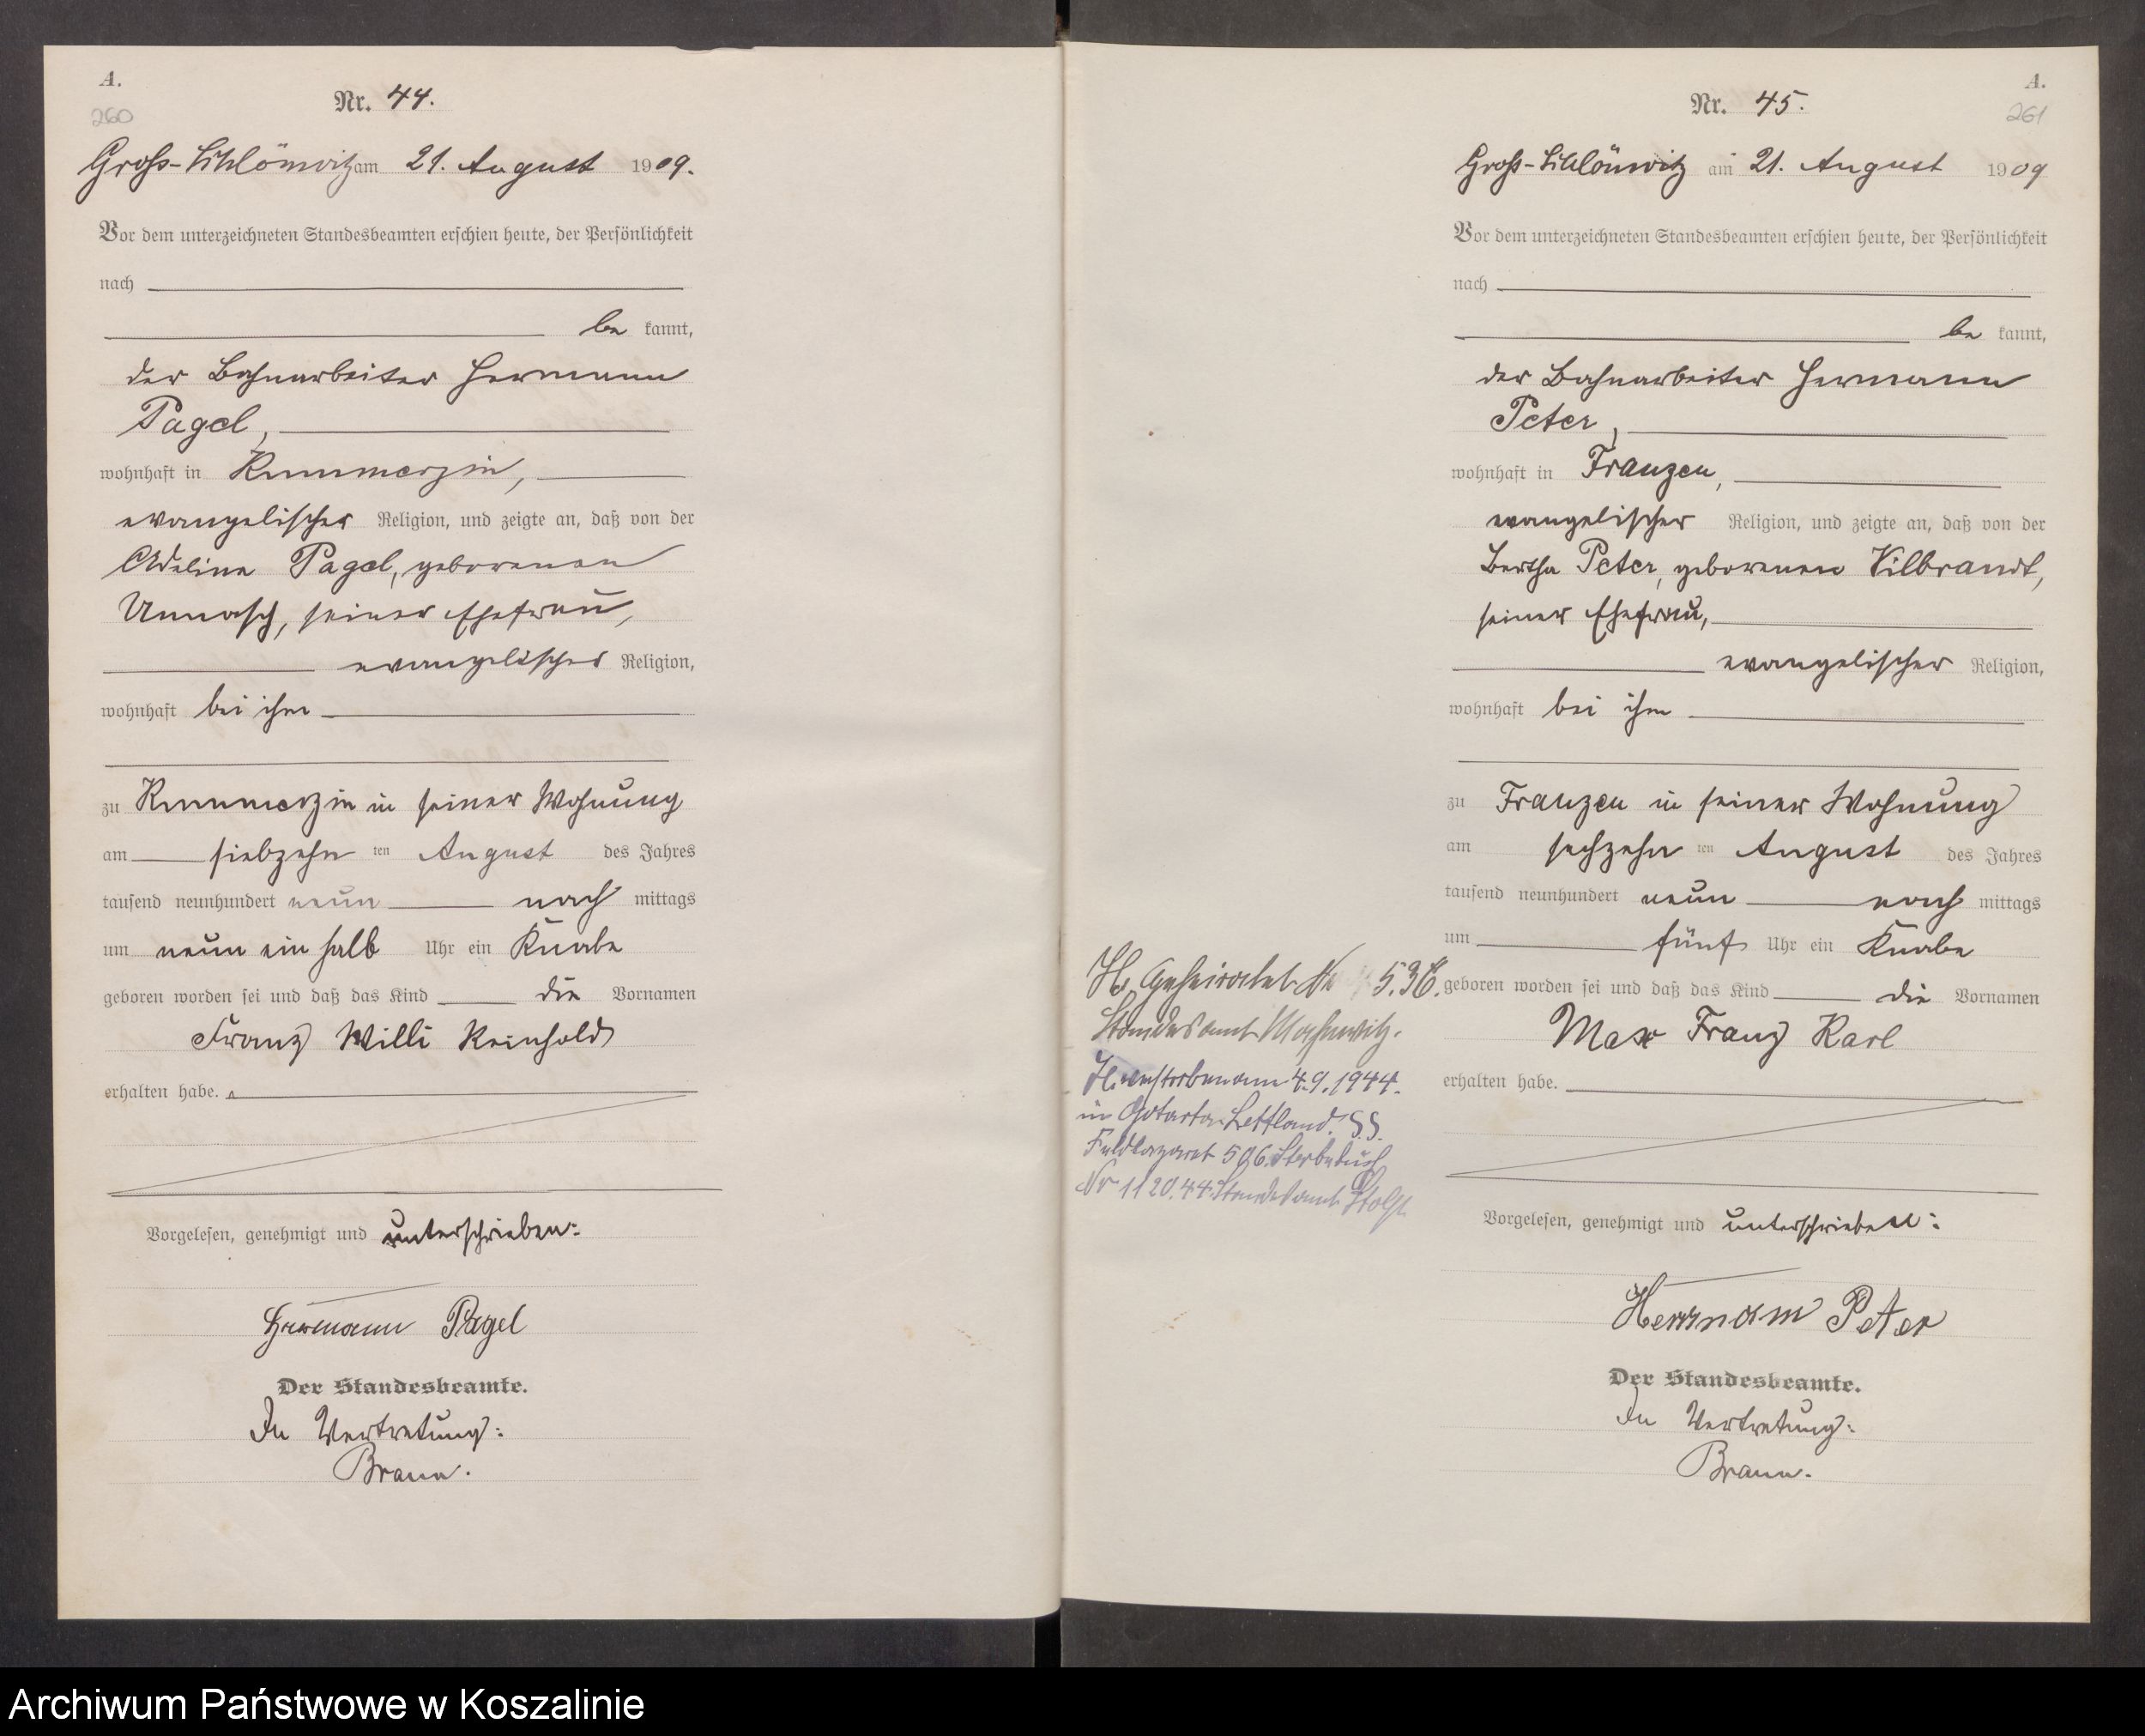 A.
260
Nr. 44.
Groß-Schlönwitz am 21. August 1909.
Vor dem unterzeichneten Standesbeamten erschien heute, der Persönlichkeit
nach
be kannt,
der Bahnarbeiter Hermann
Pagel,
wohnhaft in Kummerzin,
evangelischer Religion, und zeigte an, daß von der
Adeline Pagel, geborenen
Unnasch, seiner Ehefrau,
evangelischer Religion,
wohnhaft bei ihm
zu Kummerzin in seiner Wohnung
am siebzehn ten August des Jahres
tausend neunhundert neun nach mittags
um neun ein halb Uhr ein Knabe
geboren worden sei und daß das Kind die Vornamen
Franz Willi Reinhold
erhalten habe.
Vorgelesen, genehmigt und unterschrieben:
Hermann Pagel
Der Standesbeamte.
In Vertretung:
Braun.
A.
261
Nr. 45.
Groß-Schlönwitz am 21. August 1909
Vor dem unterzeichneten Standesbeamten erschien heute, der Persönlichkeit
nach
be kannt,
der Bahnarbeiter Hermann
Peter,
wohnhaft in Franzen,
evangelischer Religion, und zeigte an, daß von der
Bertha Peter, geborenen Vilbrandt,
seiner Ehefrau,
evangelischer Religion,
wohnhaft bei ihm
zu Franzen in seiner Wohnung
am sechzehn ten August des Jahres
tausend neunhundert neun nach mittags
um fünf Uhr ein Knabe
geboren worden sei und daß das Kind die Vornamen
Max Franz Karl
erhalten habe.
Vorgelesen, genehmigt und unterschrieben:
Hermann Peter
Der Standesbeamte.
In Vertretung:
Braun.
Geheiratet Nr 5.36.
Standesamt
verstorben am 4.9.1944.
in Lettland. SS.
Feldlazarett 506. Sterbebuch
Nr 1120.44. Standesamt Stolp.
Archiwum Państwowe w Koszalinie